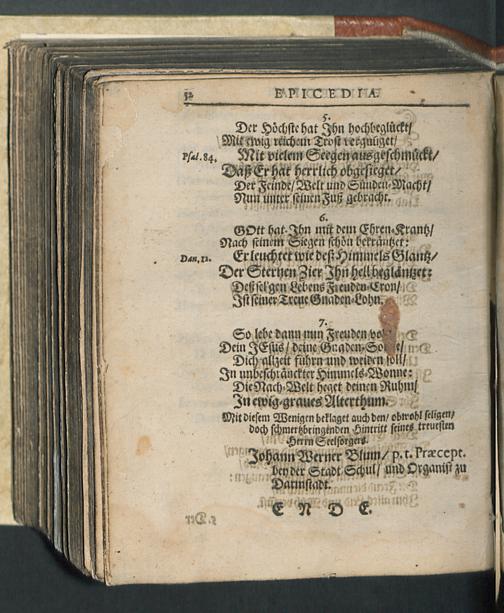 52 EPICEDIA
5.
Der Höchste hat Ihn hochbeglückt/
Mit ewig reichem Trost vergnüget/
Psal. 84. Mit vielem Seegen ausgeschmückt/
Daß Er hat herrlich obgesieget/
Der Feinde/ Welt und Sünden-Macht/
Nun unter seinen Fuß gebracht.
6.
GOtt hat Ihn mit dem Ehren-Krantz/
Nach seinem Siegen schön bekräntzet:
Dan. 12. Er leuchtet wie deß Himmels Glantz/
Der Sternen Zier Ihn hell begläntzet:
Deß sel'gen Lebens Freuden-Cron/
Ist seiner Treue Gnaden-Lohn.
7.
So lebe dann nun Freuden
Dein JEsus/ deine Gnaden-
Dich allzeit führn und weiden soll/
In unbeschränckter Himmels-Wonne:
Die Nach-Welt heget deinen Ruhm/
In ewig-graues Alterthum.
Mit diesem Wenigen beklaget auch den/ obwohl seligen/
doch schmertzbringenden Hintritt seines treuesten
Herrn Seelsorgers.
Johann Werner Blum/ p. t. Præcept.
bey der Stadt Schul/ und Organist zu
Darmstadt.
E N D E.